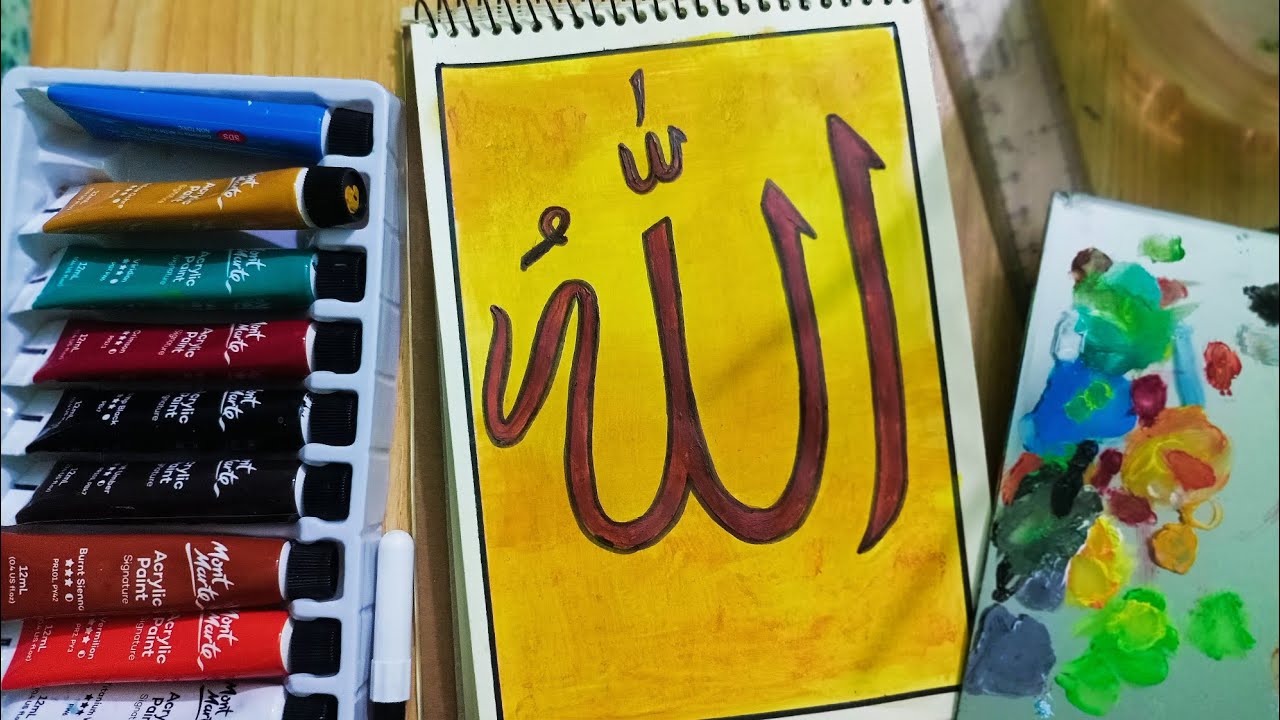 اللّٰهُ
SDS
Mont Marte
Mont Marte
Acrylic Paint
Signature
12mL
Mont Marte
Acrylic Paint
Signature
Crimson
12mL
Mont Marte
Acrylic Paint
Signature
Black
12mL
Mont Marte
Acrylic Paint
Signature
12mL
Mont Marte
Acrylic Paint
Signature
Burnt Sienna
12mL
Mont Marte
Acrylic Paint
Signature
Vermilion
12mL
Mont Marte
Acrylic Paint
Signature
12mL